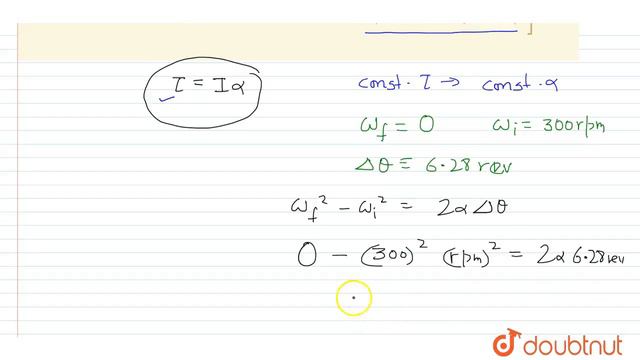 τ = Iα
const. τ → const. α
ωf = 0 ωi = 300 rpm
Δθ = 6.28 rev
ωf² - ωi² = 2α Δθ
0 - (300)² (rpm)² = 2α 6.28 rev
doubtnut